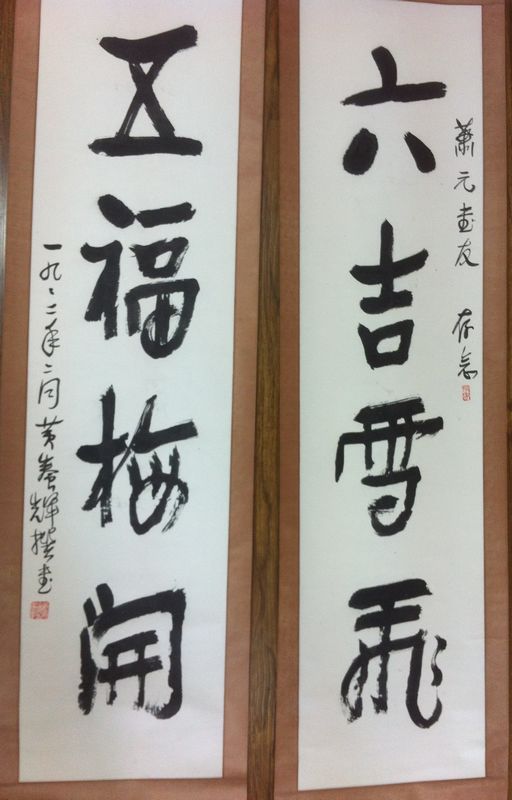 六吉雪飛
蕭元書友 存念
五福梅開
一九〻二年二月 黃養輝撰書